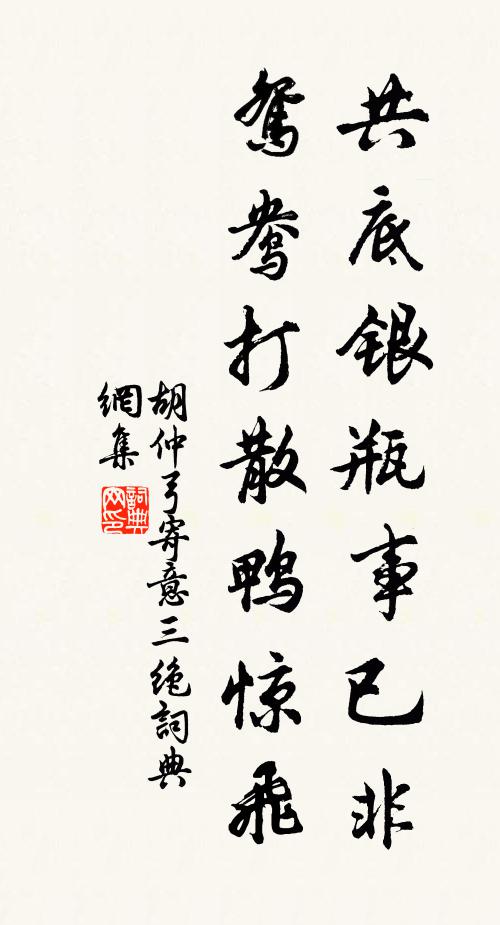 共底银瓶事已非
鸳鸯打散鸭惊飛
胡仲弓寄意三绝詞典
網集
詞典网印